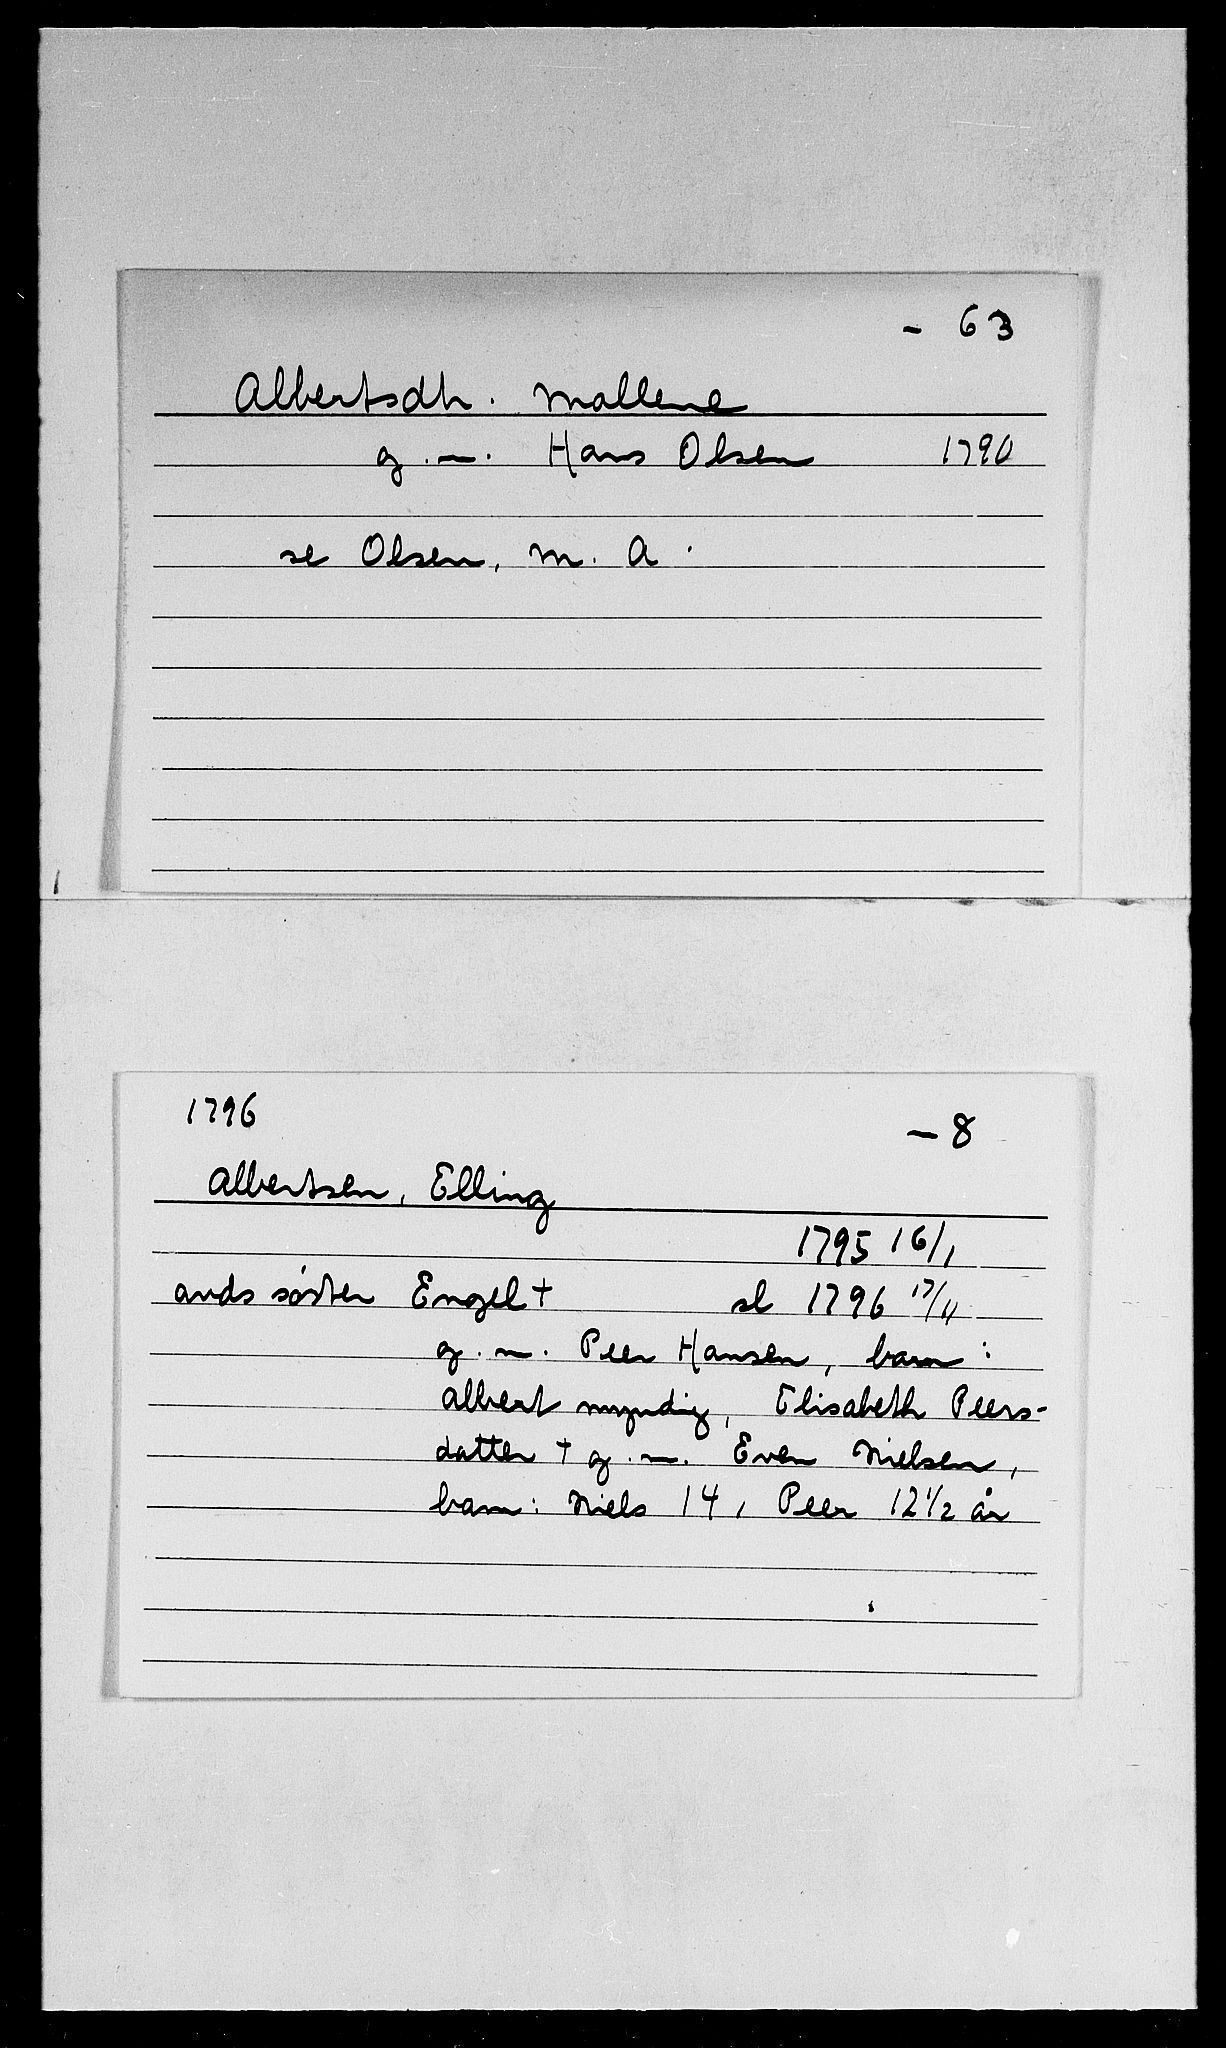 - 63
Albertsdtr. Mallene
g.m. Hans Olsen 1790
se Olsen, M. A.
1796
- 8
Albertsen, Elling
1795 16/1
avds søster Engel † sl 1796 17/11
g.m. Peer Hansen, barn:
Albert myndig, Elisabeth Peers-
datter † g.m. Even Nielsen,
barn: Niels 14, Peer 12 1/2 år